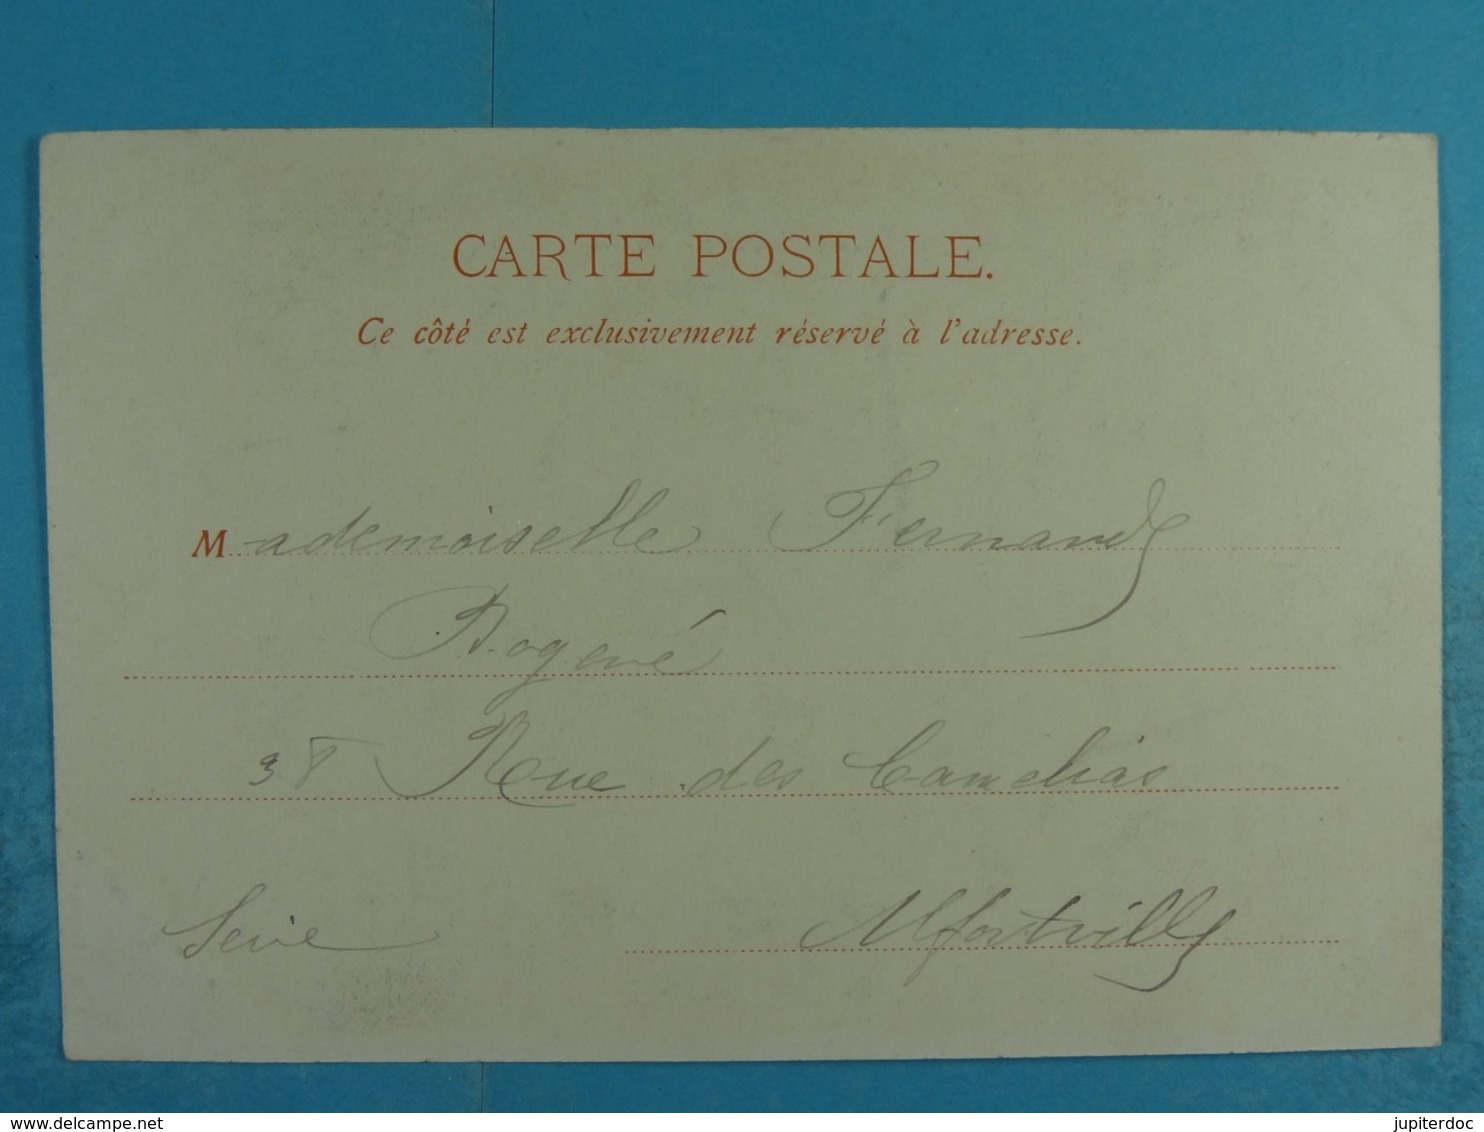 CARTE POSTALE.
Ce côté est exclusivement réservé à l'adresse.
Mademoiselle Fernande
Rogené
Rue des Camelias
Seine Alfortville
delcampe.net
jupiterdoc